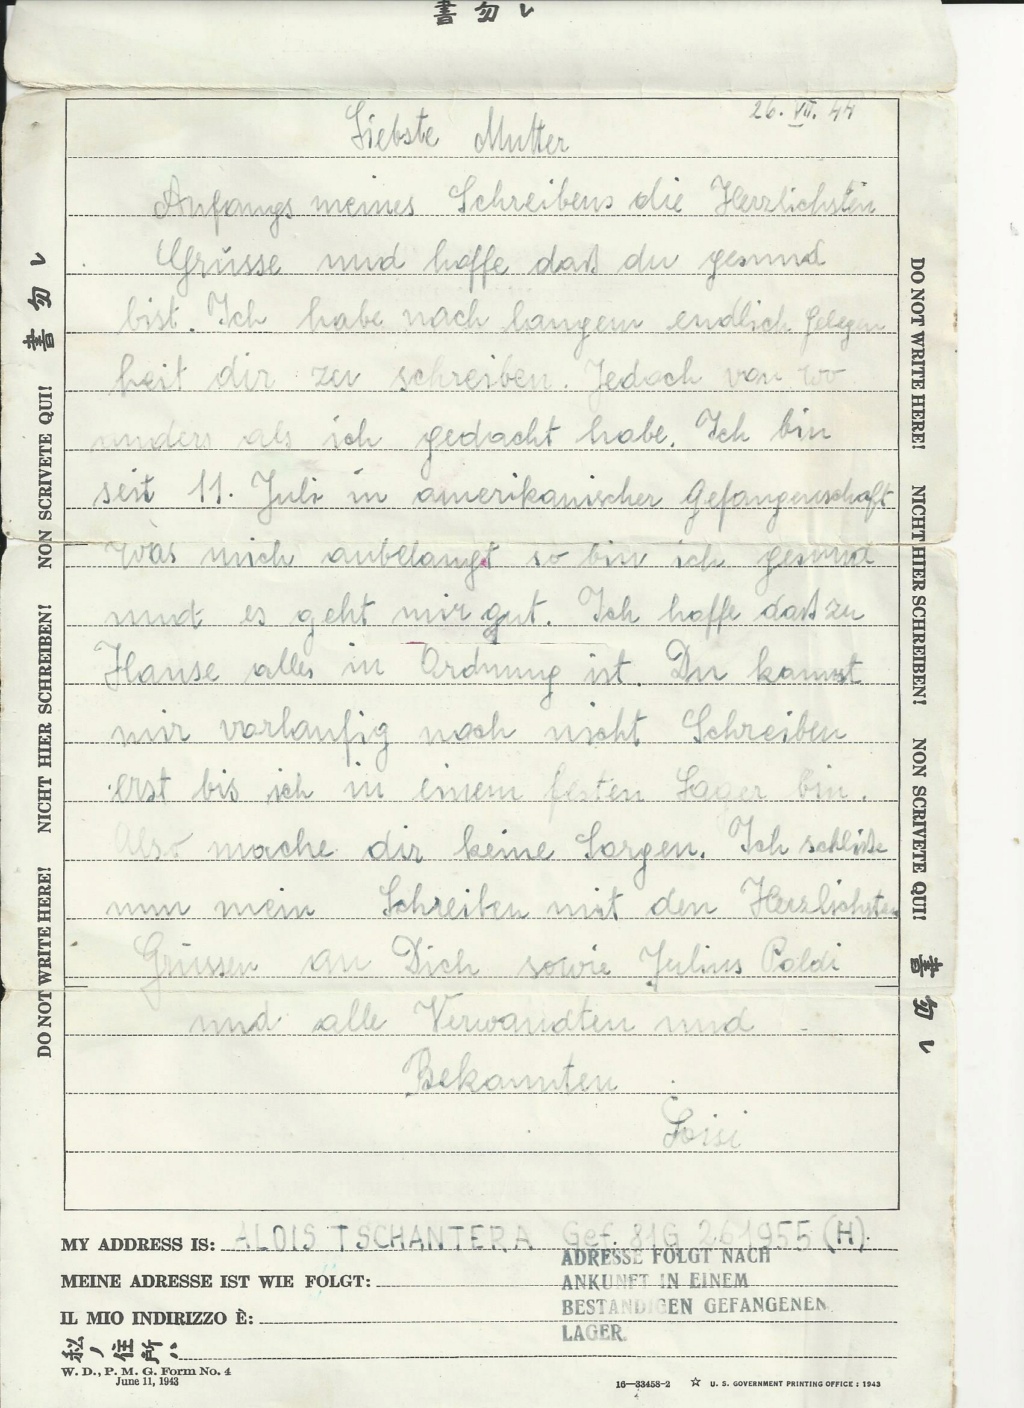 書勿レ
26. VII. 44
Liebste Mutter
Anfangs meines Schreibens die Herzlichsten
Grüsse und hoffe daß du gesund
bist. Ich habe nach langem endlich gelegen
heit dir zu schreiben. Jedoch von wo
anders als ich gedacht habe. Ich bin
seit 11. Juli in amerikanischer Gefangenschaft
was mich anbelangt so bin ich gesund
und es geht mir gut. Ich hoffe daß zu
Hause alles in Ordnung ist. Du kannst
mir vorlaufig noch nicht Schreiben
erst bis ich in einem festen Lager bin.
Also mache dir keine Sorgen. Ich schließe
nun mein Schreiben mit den Herzlichsten
Grüssen an Dich sowie Julius Poldi
und alle Verwandten und
Bekannten
Loisi
DO NOT WRITE HERE! NICHT HIER SCHREIBEN! NON SCRIVETE QUI! 書勿レ
DO NOT WRITE HERE! NICHT HIER SCHREIBEN! NON SCRIVETE QUI! 書勿レ
MY ADDRESS IS: ALOIS TSCHANTERA Gef. 81G 261955 (H).
ADRESSE FOLGT NACH
MEINE ADRESSE IST WIE FOLGT:
ANKUNFT IN EINEM
BESTANDIGEN GEFANGENEN
IL MIO INDIRIZZO È:
LAGER.
私ノ住所ハ
W. D., P. M. G. Form No. 4
June 11, 1943
16—33458-2 ☆ U. S. GOVERNMENT PRINTING OFFICE : 1943